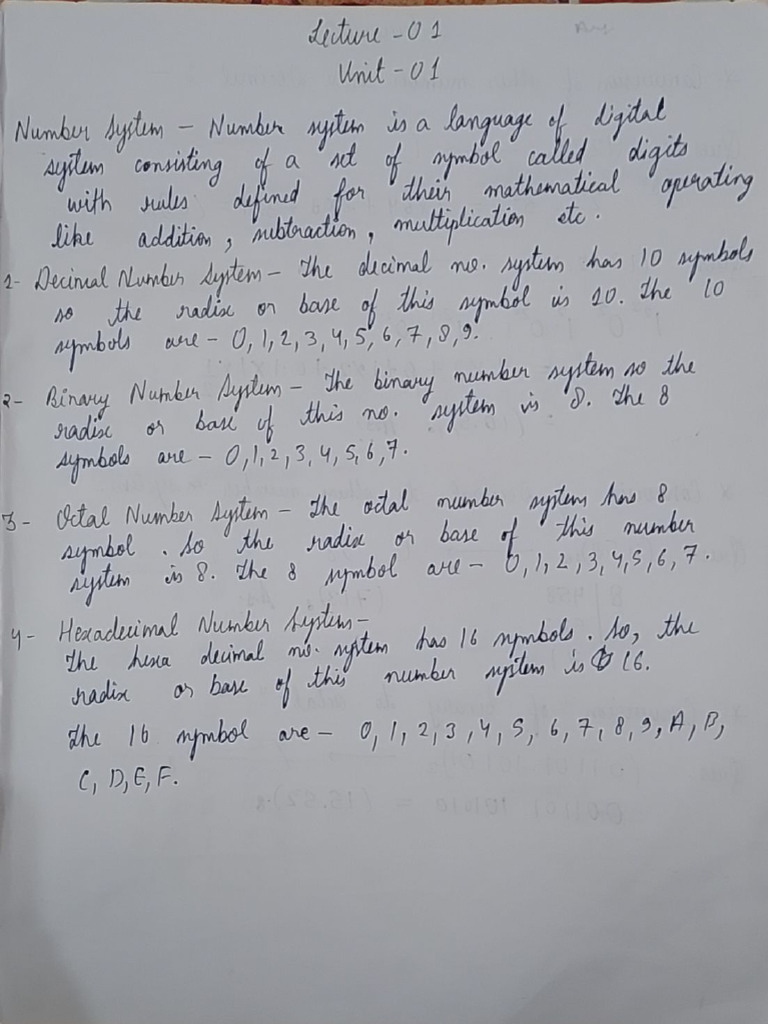 Lecture - 01
Unit - 01
Number System - Number system is a language of digital
system consisting of a set of symbol called digits
with rules defined for their mathematical operating
like addition, subtraction, multiplication etc.
1- Decimal Number System - The decimal no. system has 10 symbols
so the radix or base of this symbol is 10. The 10
symbols are - 0, 1, 2, 3, 4, 5, 6, 7, 8, 9.
2- Binary Number System - The binary number system so the
radix or base of this no. system is 8. The 8
symbols are - 0, 1, 2, 3, 4, 5, 6, 7.
3- Octal Number System - The octal number system has 8
symbol. So the radix or base of this number
system is 8. The 8 symbol are - 0, 1, 2, 3, 4, 5, 6, 7.
4- Hexadecimal Number System -
The hexa decimal no. system has 16 symbols. So, the
radix or base of this number system is 16.
The 16 symbol are - 0, 1, 2, 3, 4, 5, 6, 7, 8, 9, A, B,
C, D, E, F.